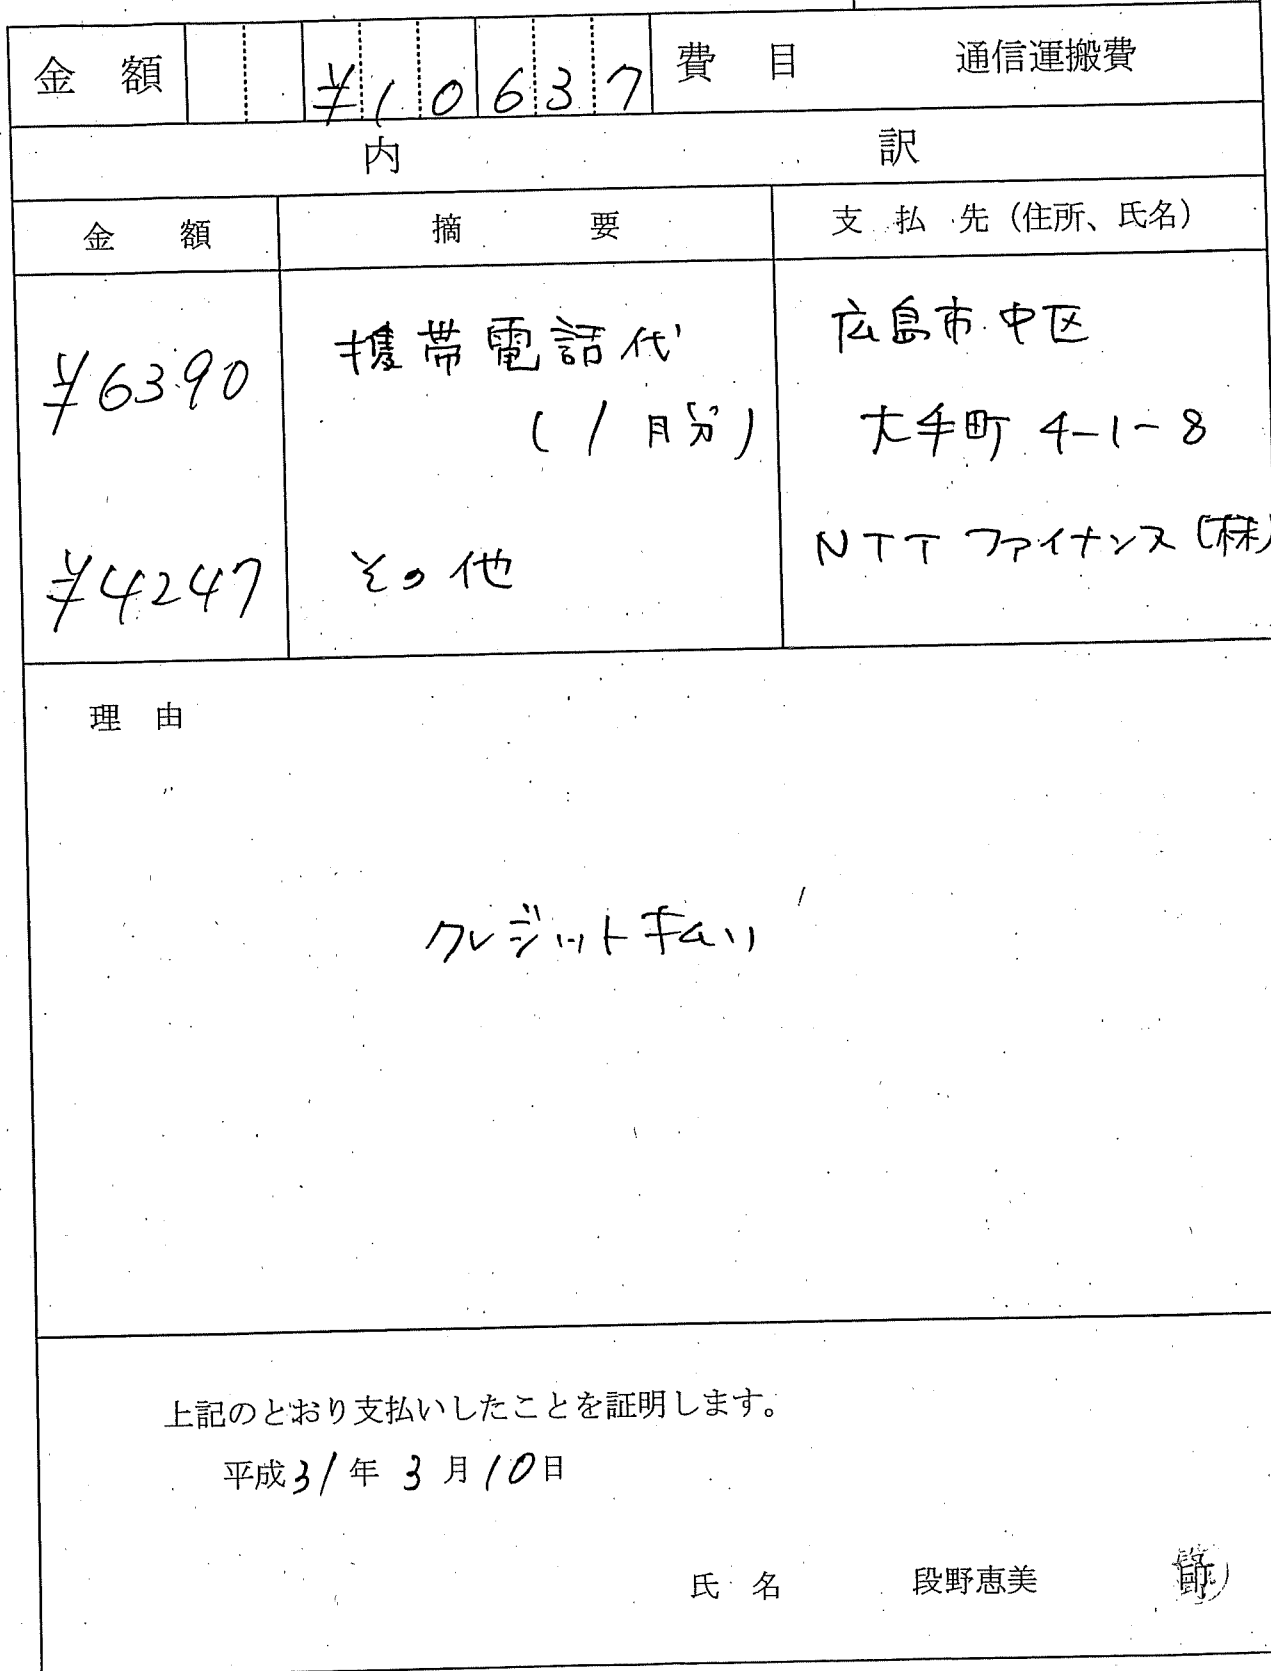 金 額 ¥10637 費 目 通信運搬費
内 訳
金 額 摘 要 支 払 先（住所、氏名）
¥6390 携帯電話代 広島市中区
（1月分） 大手町 4-1-8
¥4247 その他 NTTファイナンス(株)
理 由
クレジット払い
上記のとおり支払いしたことを証明します。
平成31年 3月10日
氏 名 段野恵美 印